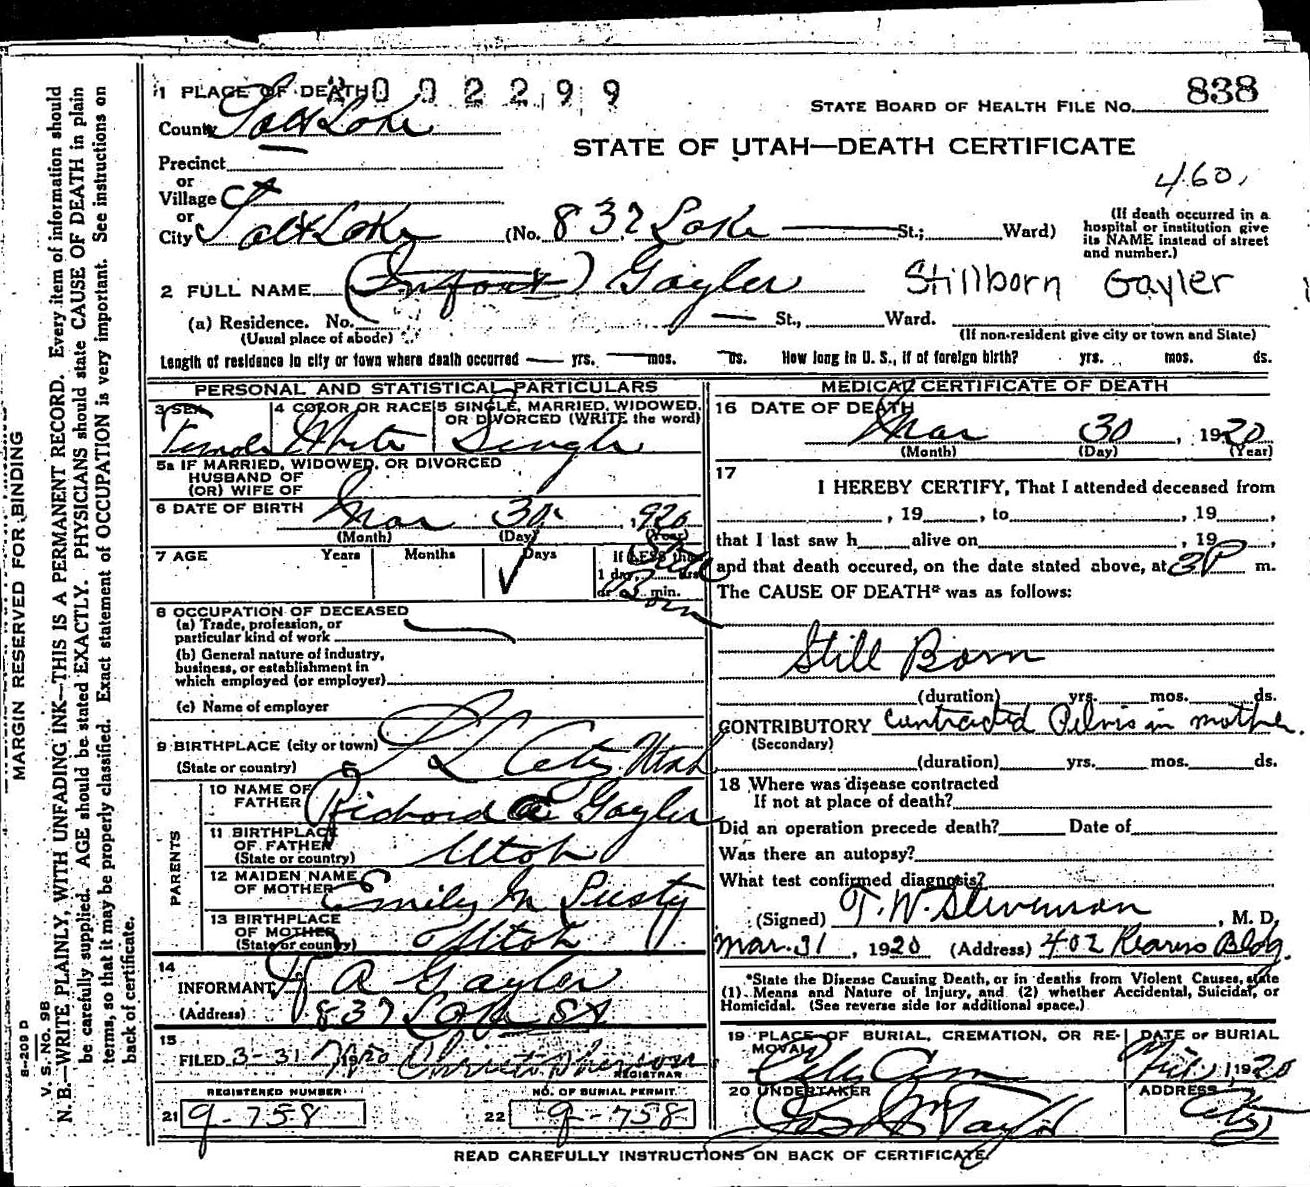 1 PLACE OF DEATH 002299
838
STATE BOARD OF HEALTH FILE No.
County Salt Lake
STATE OF UTAH—DEATH CERTIFICATE
Precinct
460
or
Village
or
City Salt Lake (No. 837 Lake St.; Ward)
(If death occurred in a
hospital or institution give
its NAME instead of street
and number.)
2 FULL NAME (Infant) Gayler Stillborn Gayler
(a) Residence. No. St., Ward.
(Usual place of abode)
(If non-resident give city or town and State)
Length of residence in city or town where death occurred yrs. mos. ds. How long in U. S., if of foreign birth? yrs. mos. ds.
PERSONAL AND STATISTICAL PARTICULARS
3 SEX 4 COLOR OR RACE 5 SINGLE, MARRIED, WIDOWED,
OR DIVORCED (WRITE the word)
Female White Single
5a IF MARRIED, WIDOWED, OR DIVORCED
HUSBAND OF
(OR) WIFE OF
6 DATE OF BIRTH Mar 30, 1920
(Month) (Day) (Year)
7 AGE Years Months Days If LESS than
1 day, hrs.
or min.
Still Born
8 OCCUPATION OF DECEASED
(a) Trade, profession, or
particular kind of work
(b) General nature of industry,
business, or establishment in
which employed (or employer)
(c) Name of employer
9 BIRTHPLACE (city or town) S L City, Utah
(State or country)
PARENTS
10 NAME OF
FATHER Richard A Gayler
11 BIRTHPLACE
OF FATHER Utah
(State or country)
12 MAIDEN NAME
OF MOTHER Emily M Pusty
13 BIRTHPLACE
OF MOTHER Utah
(State or country)
14
INFORMANT R A Gayler
(Address) 837 Lake St
15
FILED 3-31 1920
REGISTRAR
REGISTERED NUMBER NO. OF BURIAL PERMIT
21 9-758 22 9-758
MEDICAL CERTIFICATE OF DEATH
16 DATE OF DEATH
Mar 30, 1920
(Month) (Day) (Year)
17
I HEREBY CERTIFY, That I attended deceased from
, 19 , to , 19 ,
that I last saw h alive on , 19 ,
and that death occured, on the date stated above, at 3P m.
The CAUSE OF DEATH* was as follows:
Still Born
(duration) yrs. mos. ds.
CONTRIBUTORY contracted Pelvis in mother.
(Secondary)
(duration) yrs. mos. ds.
18 Where was disease contracted
If not at place of death?
Did an operation precede death? Date of
Was there an autopsy?
What test confirmed diagnosis?
(Signed) T. W. Stevenson, M. D.
Mar. 31, 1920 (Address) 402 Kearns Bldg.
*State the Disease Causing Death, or in deaths from Violent Causes, state
(1) Means and Nature of Injury, and (2) whether Accidental, Suicidal, or
Homicidal. (See reverse side for additional space.)
19 PLACE OF BURIAL, CREMATION, OR RE-
MOVAL City Cem
DATE OF BURIAL
1920
20 UNDERTAKER
Jos Wm Taylor
ADDRESS
City
READ CAREFULLY INSTRUCTIONS ON BACK OF CERTIFICATE.
MARGIN RESERVED FOR BINDING
B-209 D
V. S. No. 9B
N. B.—WRITE PLAINLY, WITH UNFADING INK—THIS IS A PERMANENT RECORD. Every item of information should
be carefully supplied. AGE should be stated EXACTLY. PHYSICIANS should state CAUSE OF DEATH in plain
terms, so that it may be properly classified. Exact statement of OCCUPATION is very important. See instructions on
back of certificate.